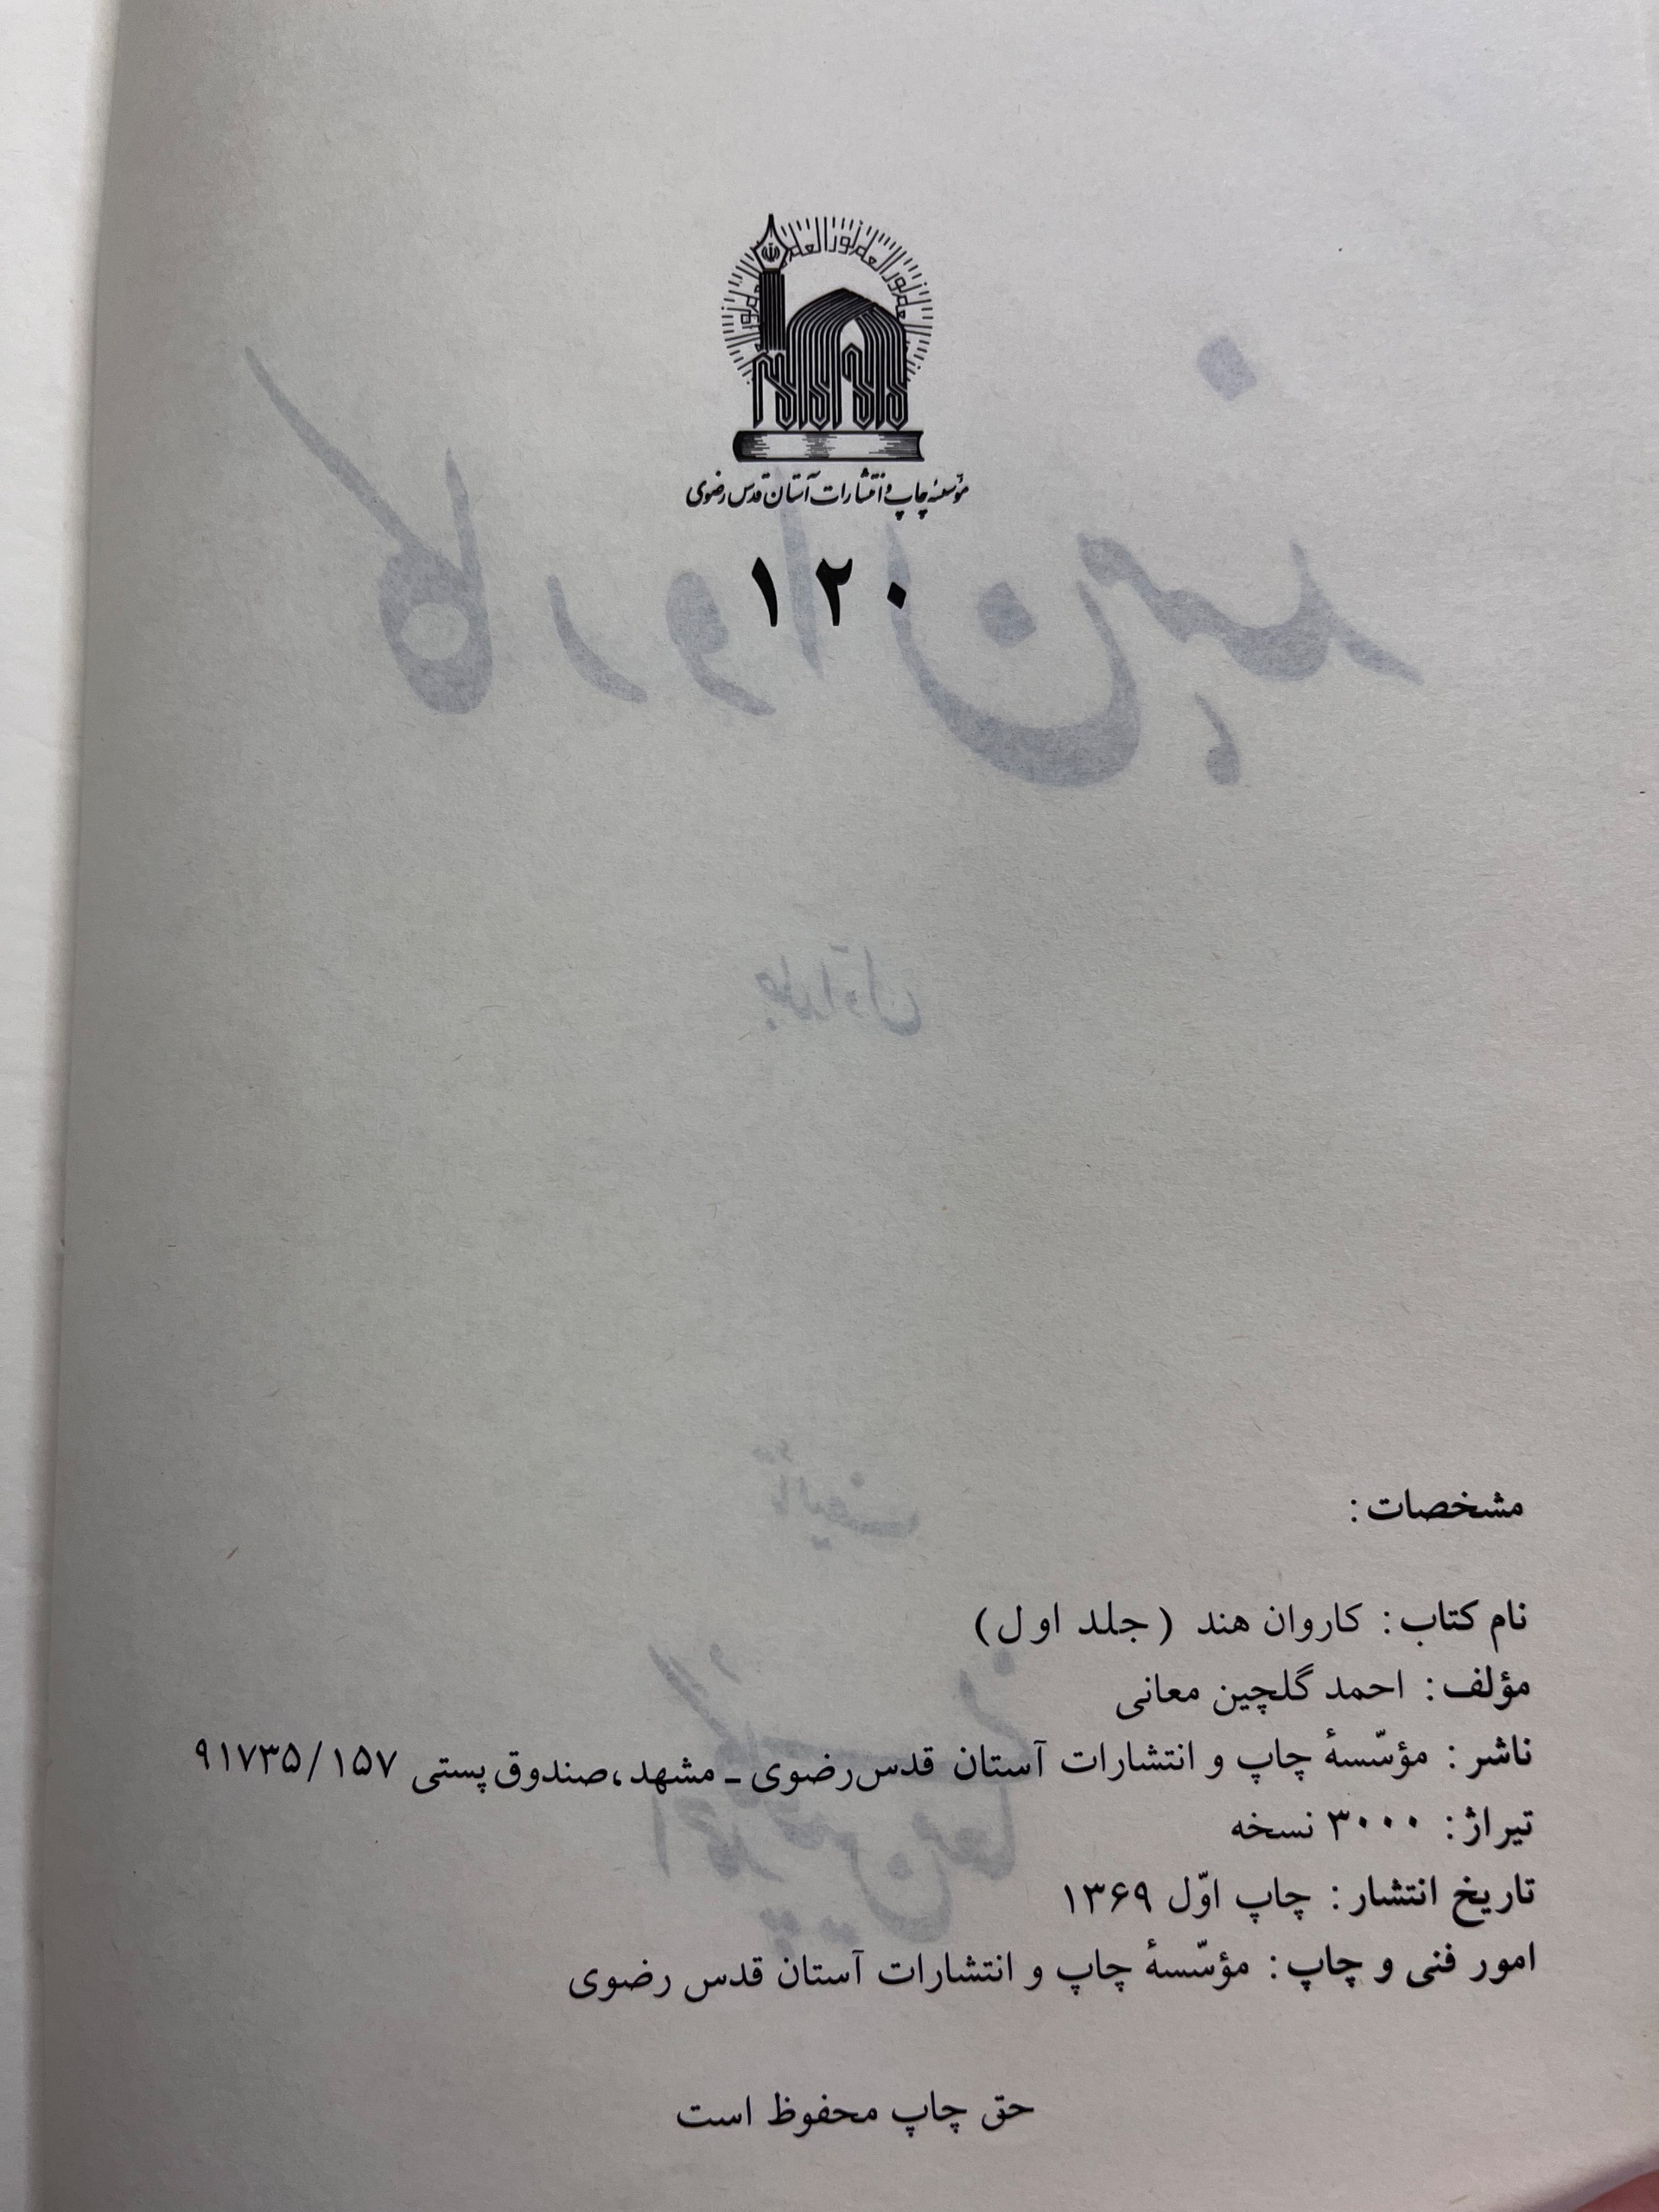 مؤسسه چاپ و انتشارات آستان قدس رضوی
۱۲۰
مشخصات:
نام کتاب: کاروان هند (جلد اول)
مؤلف: احمد گلچین معانی
ناشر: مؤسّسهٔ چاپ و انتشارات آستان قدس‌رضوی ـ مشهد،صندوق‌پستی ۹۱۷۳۵/۱۵۷
تیراژ: ۳۰۰۰ نسخه
تاریخ انتشار: چاپ اوّل ۱۳۶۹
امور فنی و چاپ: مؤسّسهٔ چاپ و انتشارات آستان قدس رضوی
حق چاپ محفوظ است
کاروان هند
جلد اوّل
تألیف
احمد گلچین معانی